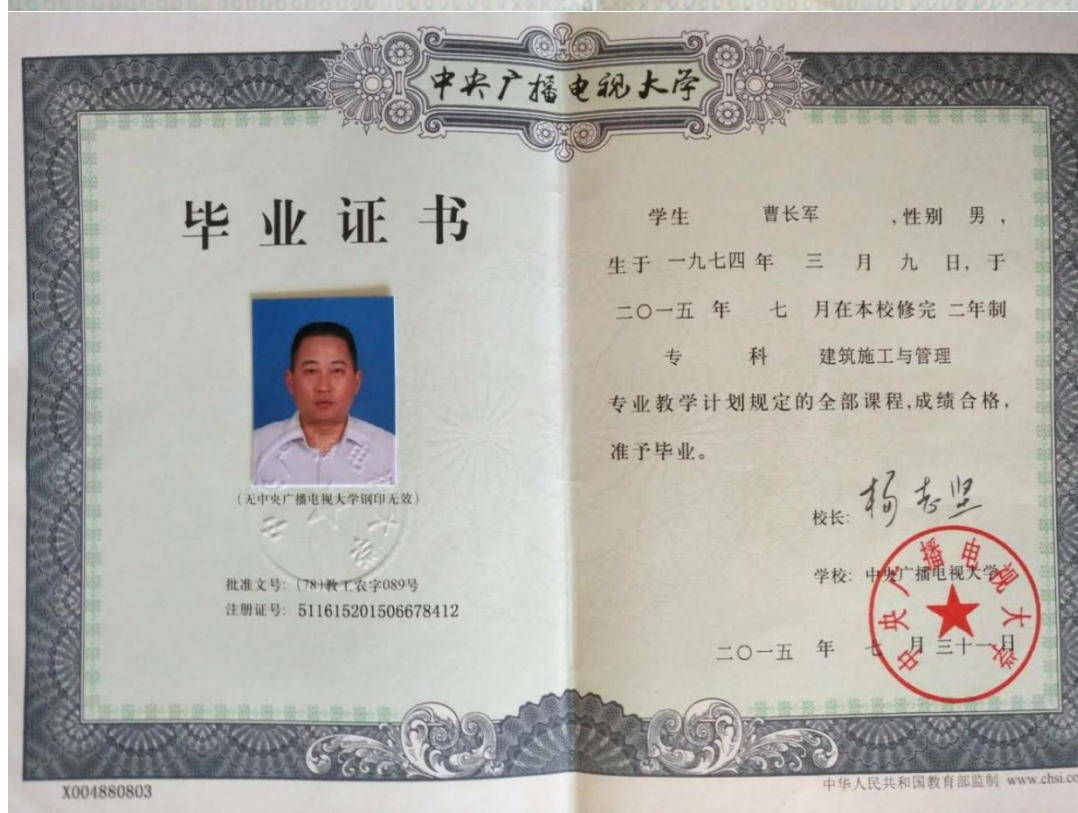 中央广播电视大学
毕业证书
(无中央广播电视大学钢印无效)
批准文号: (78)教工农字089号
注册证号: 511615201506678412
X004880803
学生 曹长军 ,性别 男,
生于 一九七四 年 三 月 九 日, 于
二〇一五 年 七 月在本校修完 二年制
专 科 建筑施工与管理
专业教学计划规定的全部课程,成绩合格,
准予毕业。
校长: 杨志坚
学校: 中央广播电视大学
中央广播电视大学
二〇一五 年 七 月 三十一日
中华人民共和国教育部监制 www.chsi.co